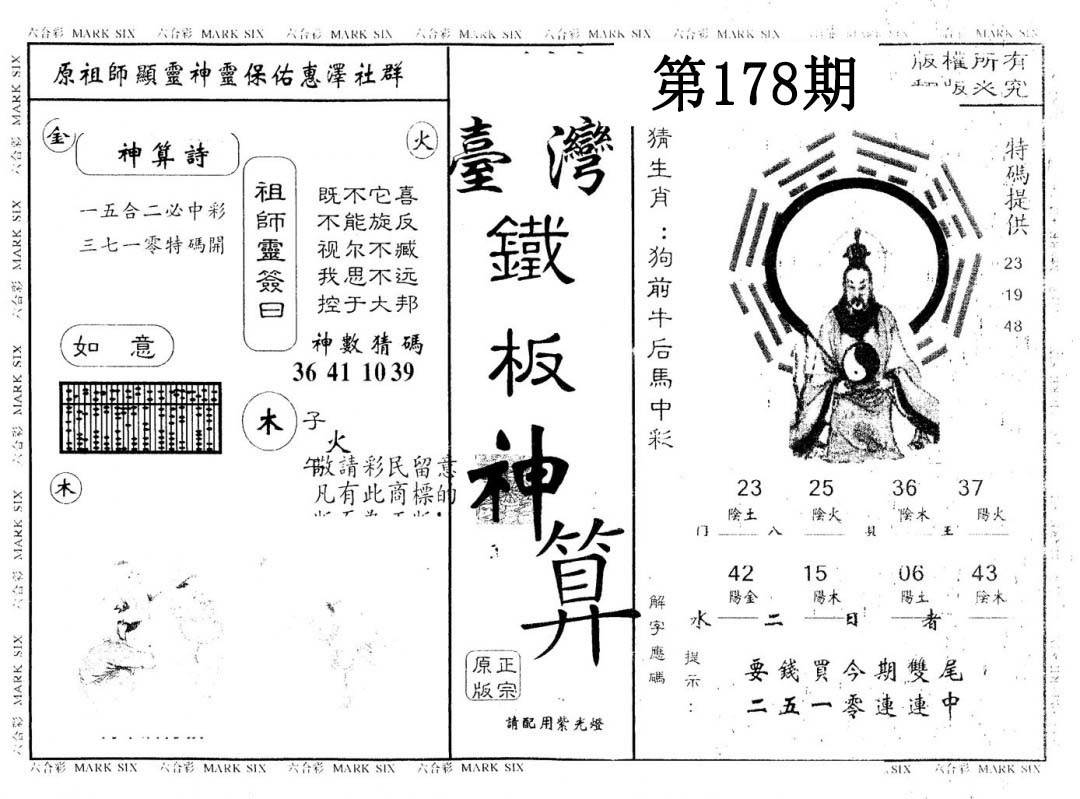 六合彩 MARK SIX 六合彩 MARK SIX 六合彩 MARK SIX 六合彩 MARK SIX 六合彩 MARK SIX 六合彩 MARK SIX MARK SIX
原祖師顯靈神靈保佑惠澤社群
第178期
版權所有
版 究
金
火
神算詩
一五合二必中彩
三七一零特碼開
祖師靈簽曰
既不它喜
不能旋反
视尔不臧
我思不远
控于大邦
神數猜碼
36 41 10 39
如意
木
子
火
午
木
敬請彩民留意
凡有此商標的
臺灣
鐵板神算
正宗
原版
請配用紫光燈
猜生肖：狗前牛后馬中彩
特碼提供
23
19
48
23 25 36 37
陰土 陰火 陰木 陽火
門 八 貝 王
42 15 06 43
陽金 陽木 陽土 陰木
水 二 日 者
解字應碼
提示：
要錢買今期雙尾
二五一零連連中
六合彩 MARK SIX 六合彩 MARK SIX 六合彩 MARK SIX 六合彩 MARK SIX SIX 六合彩 MARK SIX